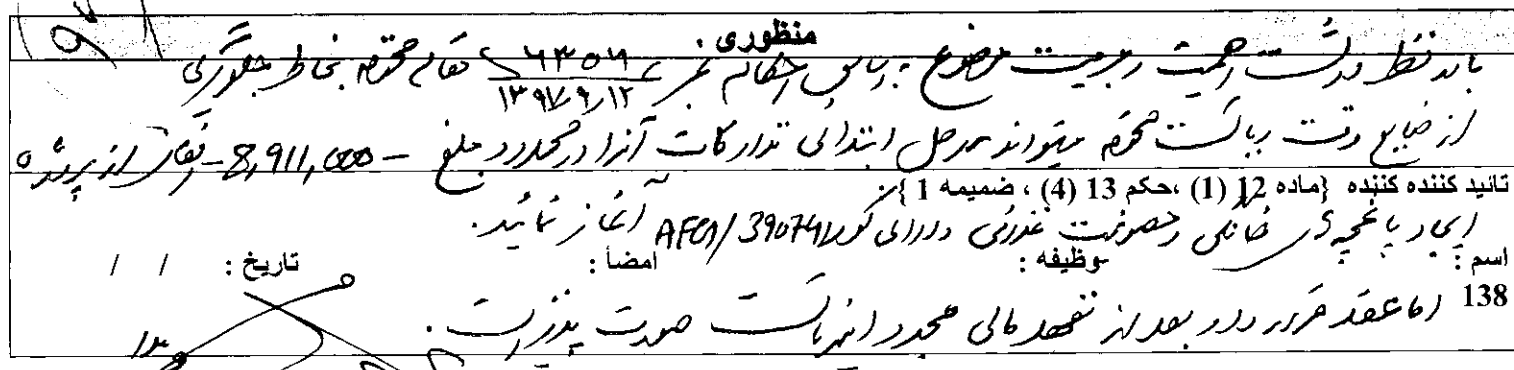 منظوری
با در نظر داشت اهمیت و مبرمیت موضوع به اساس احکام نمبر ۶۳۵۹ ۱۳۹۷/۹/۱۲ مقام محترم بخاطر جلوگیری
از ضایع وقت ریاست محترم میتواند مراحل ابتدائی تدارکات آنرا در محدود مبلغ -8,911,000- افغانی از پروژه
تائید کننده کننده {ماده 12 (1) ،حکم 13 (4) ، ضمیمه 1 }
ایجاد باغچه های خانگی و مصونیت غذائی دارای کود AFG/390741 آغاز نمائید.
اسم : وظیفه : امضا : تاریخ : / /
138 اما عقد قرارداد بعد از تعهد مالی مجدد این ریاست صورت پذیر است.